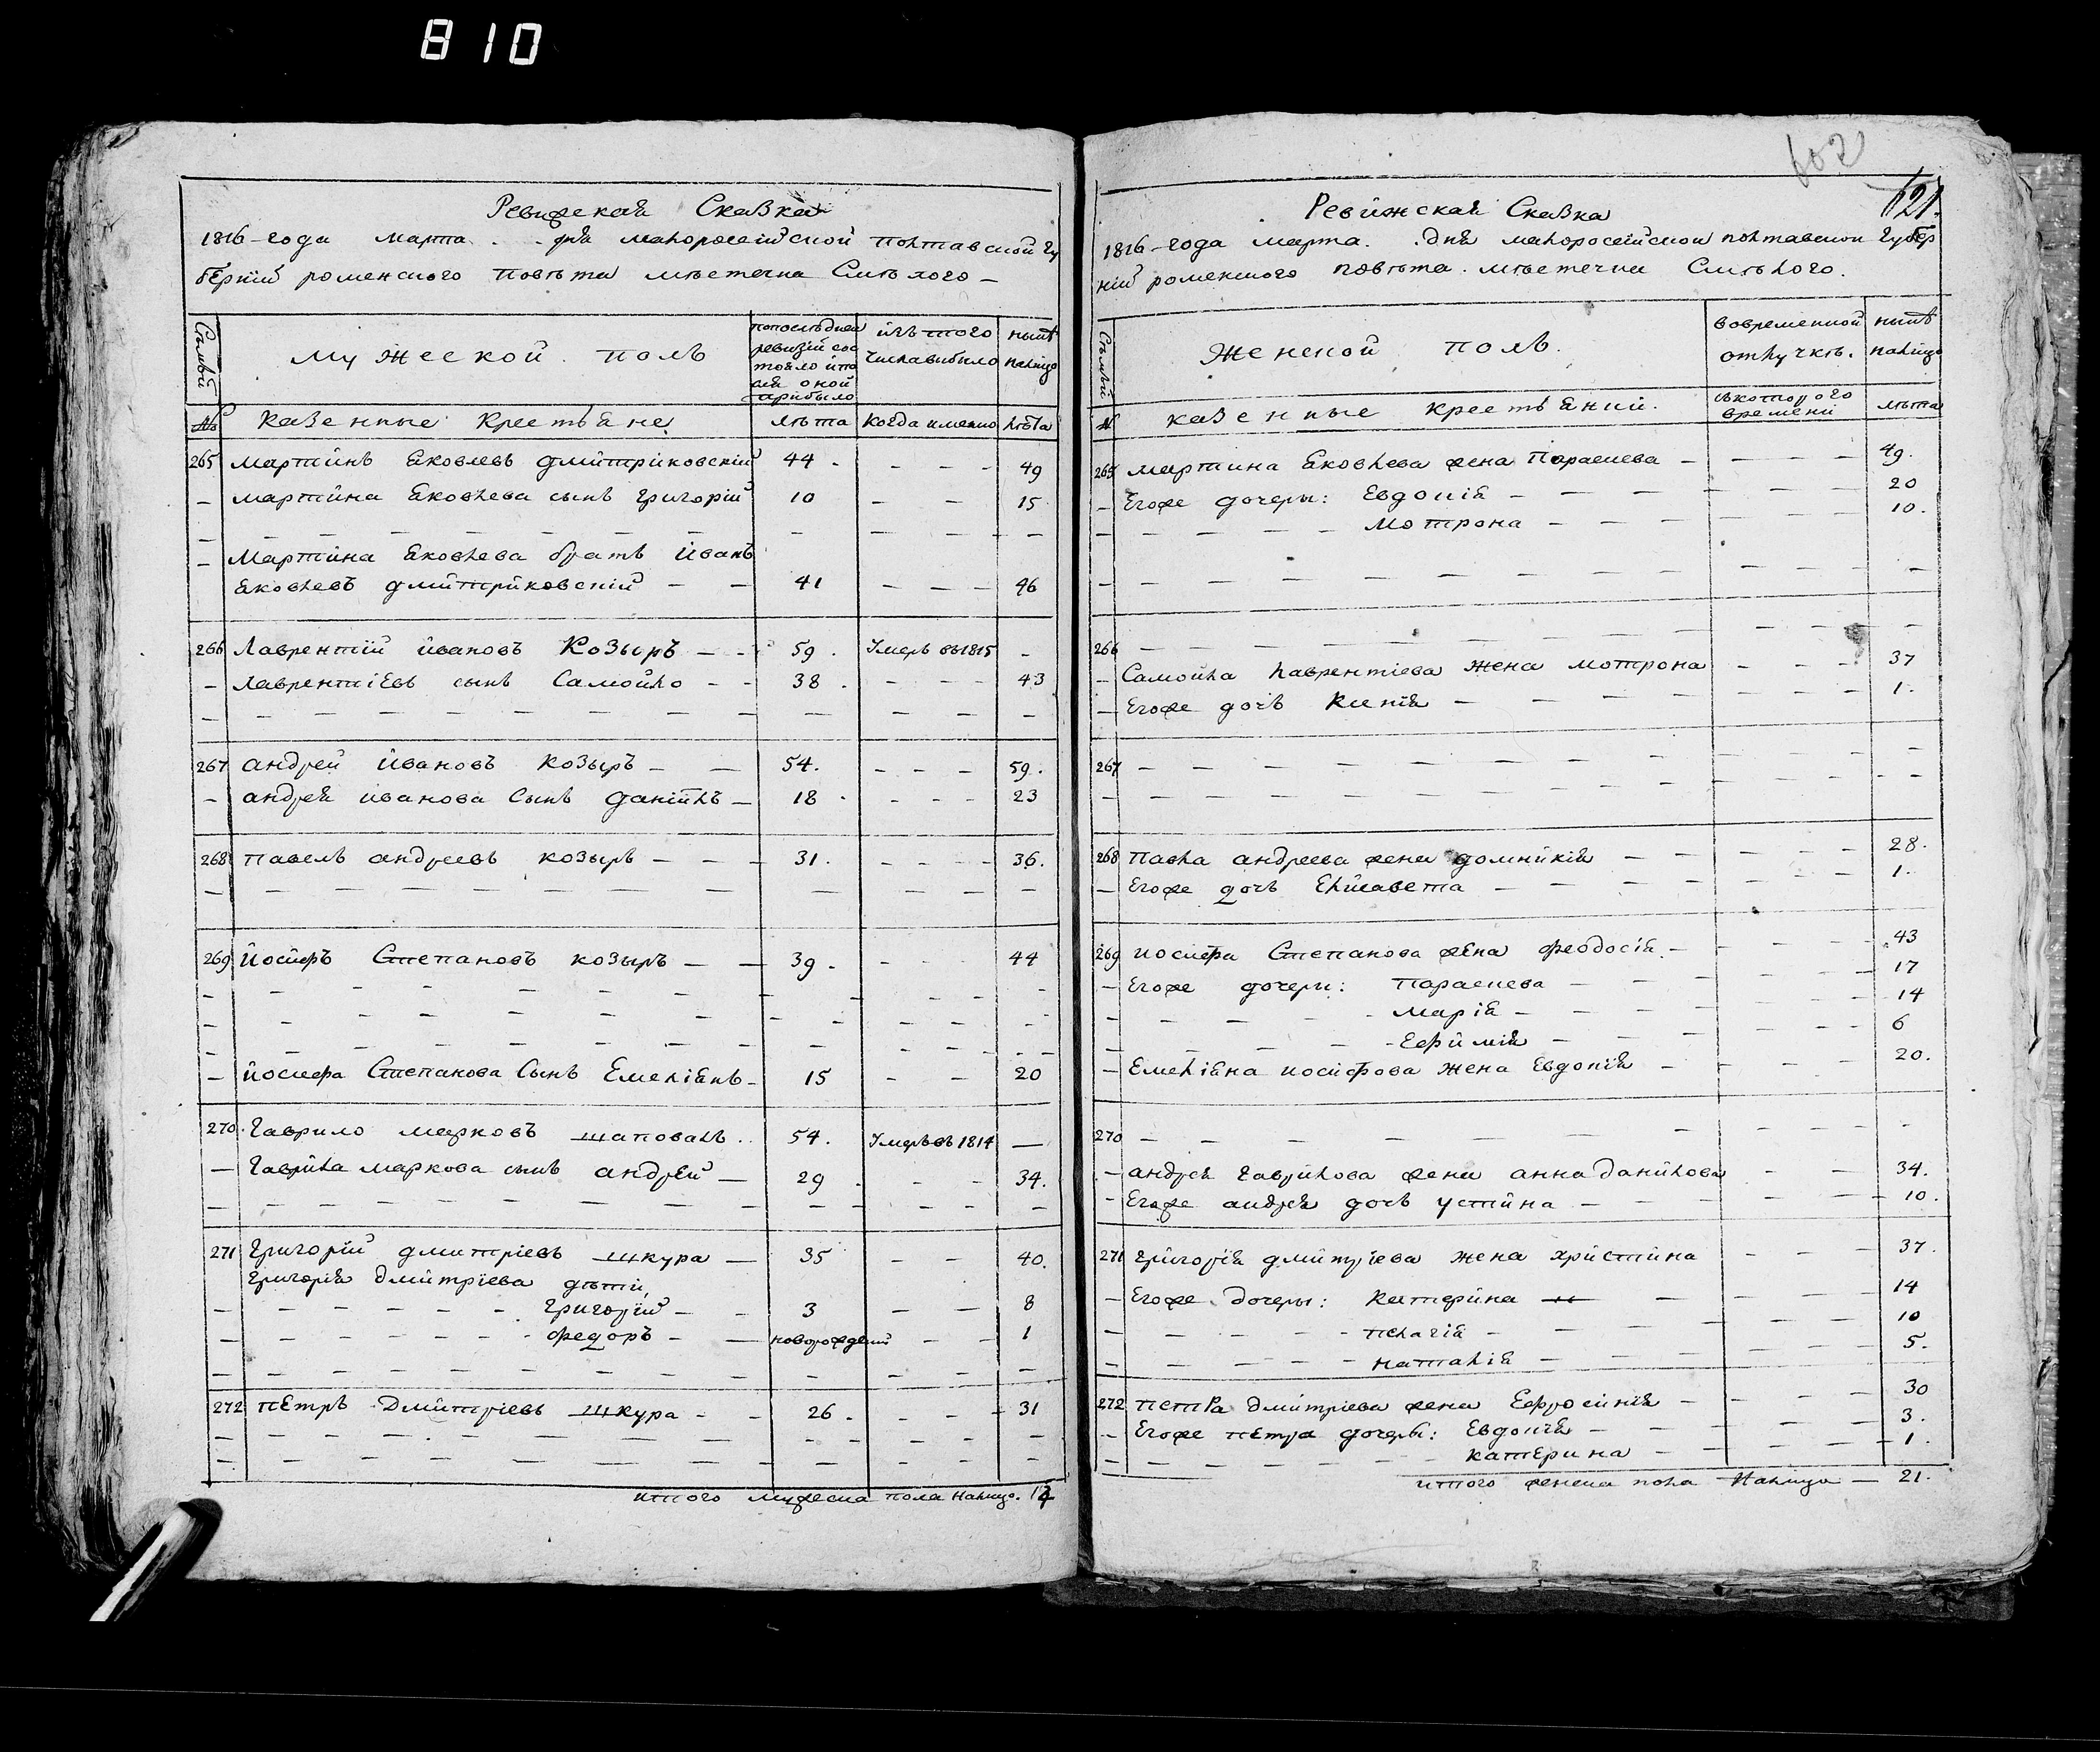 810
Ревижская Сказка
1816-года марта . . дня малоросеійской полтавской гу
берніи роменского повѣта мѣстечка Смѣлого —
Семьи
мужеской полъ
попослѣдней ревизіи состояло и после оной прибыло
изъ того числа выбыло
нынѣ налицо
№ казенные крестьяне
лѣта
когда именно
лѣта
265 мартинъ яковлевъ дмитриковскій 44 - - - - 49
— мартина яковлева сынъ григорій 10 - - - 15
— мартина яковлева братъ иванъ
яковлевъ дмитриковскій — — 41 - - - 46
266 Лаврентій ивановъ Козыръ — - 59 . Умеръ въ 1815 -
— лаврентіевъ сынъ Самойло - - 38 . - - - 43
267 андрей ивановъ козыръ — — 54. - - - 59.
— андрея иванова сынъ данійлъ — 18 - - - 23
268 павелъ андреевъ козыръ — — — 31. - - - - 36.
269 иосифъ Степановъ козыръ — — 39 - - - 44
— иосифа Степанова Сынъ Емеліянъ - 15 - - 20
270. гаврило марковъ шаповалъ .. 54. Умеръ въ 1814 —
— гаврила маркова сынъ андрей — 29 . - - 34.
271 григорій дмитріевъ шкура — 35 - - 40.
григорія дмитріева дѣти,
— григорій - - 3 — — 8
— федоръ - — новорожденій - — 1
272 пЕтръ дмитріевъ шкура - - 26 . - - - 31
итого мужеска пола налицо. 14
602
121.
Ревижская Сказка
1816-года марта . . дня малоросеійской полтавской губер
ній роменского повѣта . мѣстечка Смѣлого .
Семьи
Женской полъ.
во временной отлучкѣ.
нынѣ налицо
№ казенные крестьяний.
съ которого времени
лѣта
265 мартина яковлева жена Параскева — - - - - 49.
— Егоже дочеры: Евдокія — 20
— мотрона - 10.
266
— Самойла лаврентіева жена мотрона - - - 37
— Егоже дочь Ксенія — 1.
267
268 павла андреева жена домникія — 28.
— Егоже дочь Елисавета — 1.
269 иосифа Степанова жена феодосія. — 43
— Егоже дочери: параскева — 17
— марія — 14
— Ефимія — 6
— Емеліяна иосифова жена Евдокія — 20.
270
— андрея гаврилова жена анна данилова - — 34.
— Егоже андрея дочь устина — 10.
271 григорія дмитріева жена христина - - — 37.
— Егоже дочеры: катерина — 14
— пелагія — 10
— наталія — 5.
272 петра дмитріева жена Ефросинія — 30
— Егоже пЕтра дочеры: Евдокія — 3.
— катЕрина — 1.
итого женска пола налицо — 21.